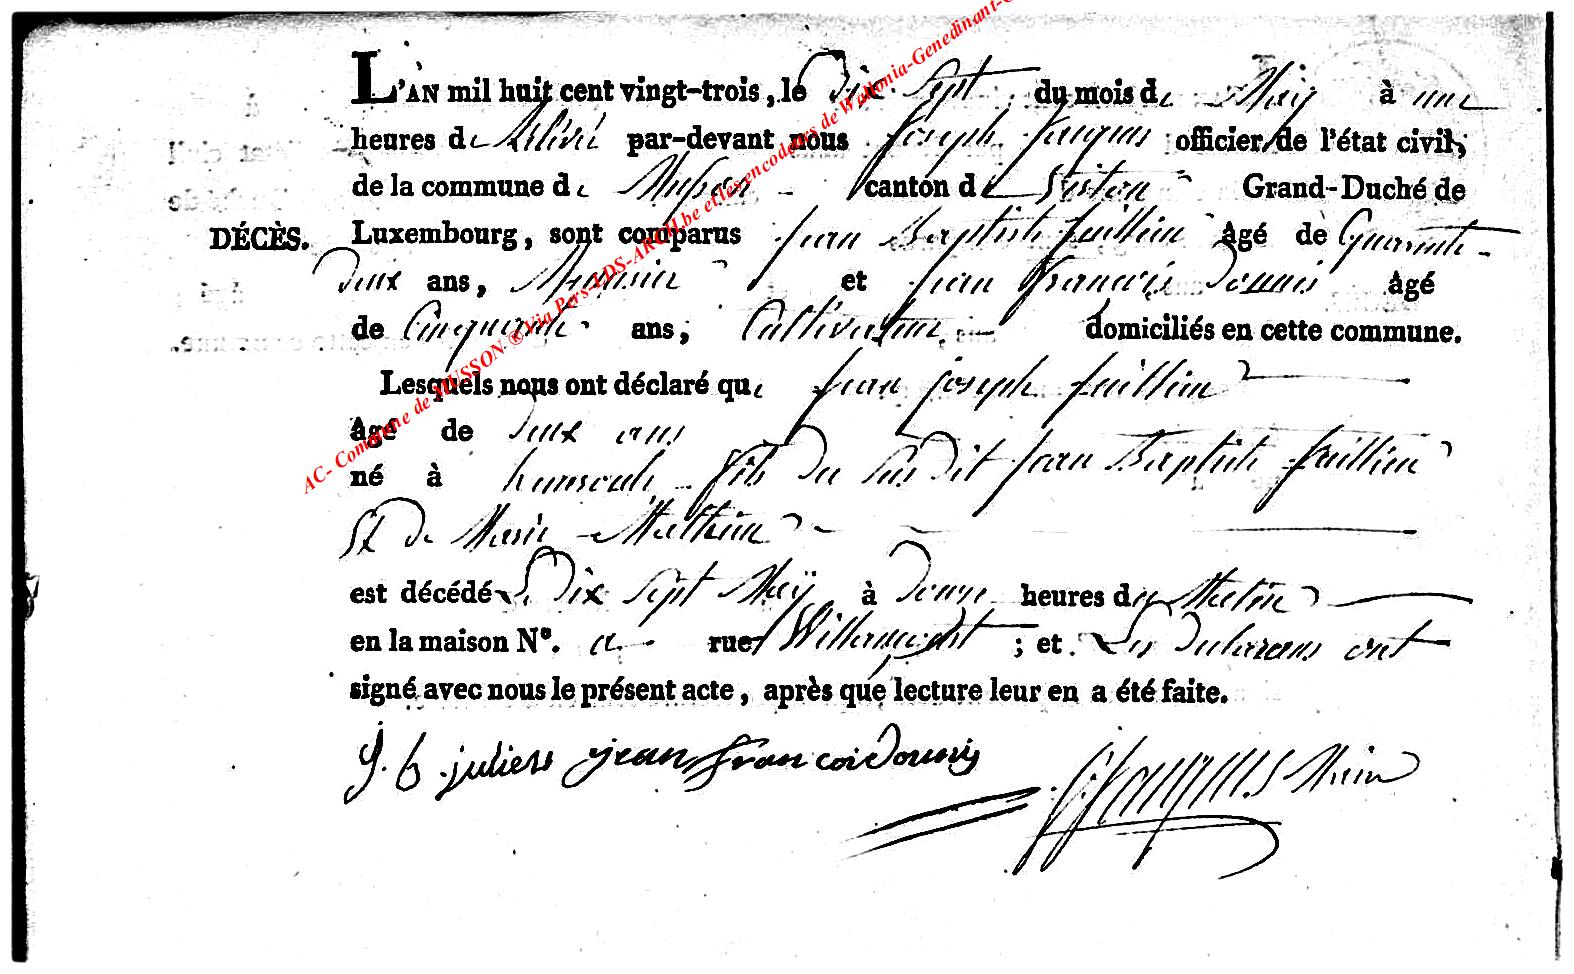 L'AN mil huit cent vingt-trois, le Dix Sept du mois de May à une
heures de Relévé par-devant nous Joseph Jacques officier de l'état civil,
de la commune de Musson canton de Virton Grand-Duché de
DÉCÈS. Luxembourg, sont comparus Jean Baptiste Juillien âgé de Quarante
Deux ans, Meunier et Jean François Donnis âgé
de Cinquante ans, Cultivateur domiciliés en cette commune.
Lesquels nous ont déclaré que Jean joseph Juillien
âgé de Deux ans
né à fils du Sus dit Jean Baptiste Juillien
Et De Marie Mathieu
est décédé Le Dix Sept Maÿ à Douze heures du Matin
en la maison N°. a rue Willancourt ; et Les Declarans ont
signé avec nous le présent acte, après que lecture leur en a été faite.
J. b juliens jean francoi Donnis J: Jacques Maire
AC- Commune de MUSSON ® Via Pers-LDS-ARCH.be et les encodeurs de Wallonia-Genedinant-